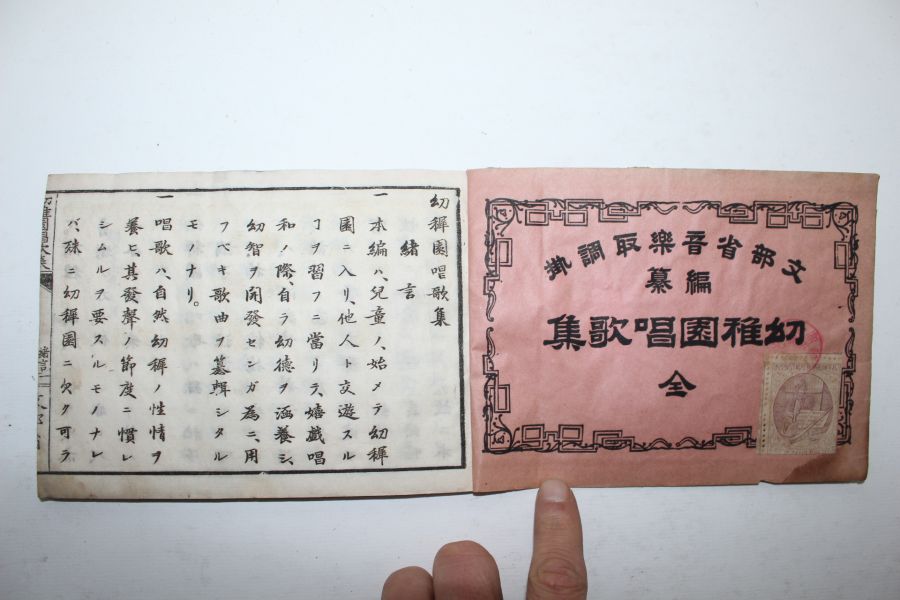 文部省音樂取調掛
編纂
幼稚園唱歌集
全
幼穉園唱歌集
緒言
一 本編ハ、兒童ノ、始メテ幼穉
園ニ入リ、他人ト交遊スル
ヿヲ習フニ當リテ、嬉戯唱
和ノ際、自ラ幼德ヲ涵養シ、
幼智ヲ開發センガ為ニ、用
フベキ歌曲ヲ纂輯シタル
モノナリ。
一 唱歌ハ、自然幼穉ノ性情ヲ
養ヒ、其發聲ノ節度ニ慣レ
シムルヲ要スルモノナレ
バ、殊ニ幼穉園ニ欠ク可ラ